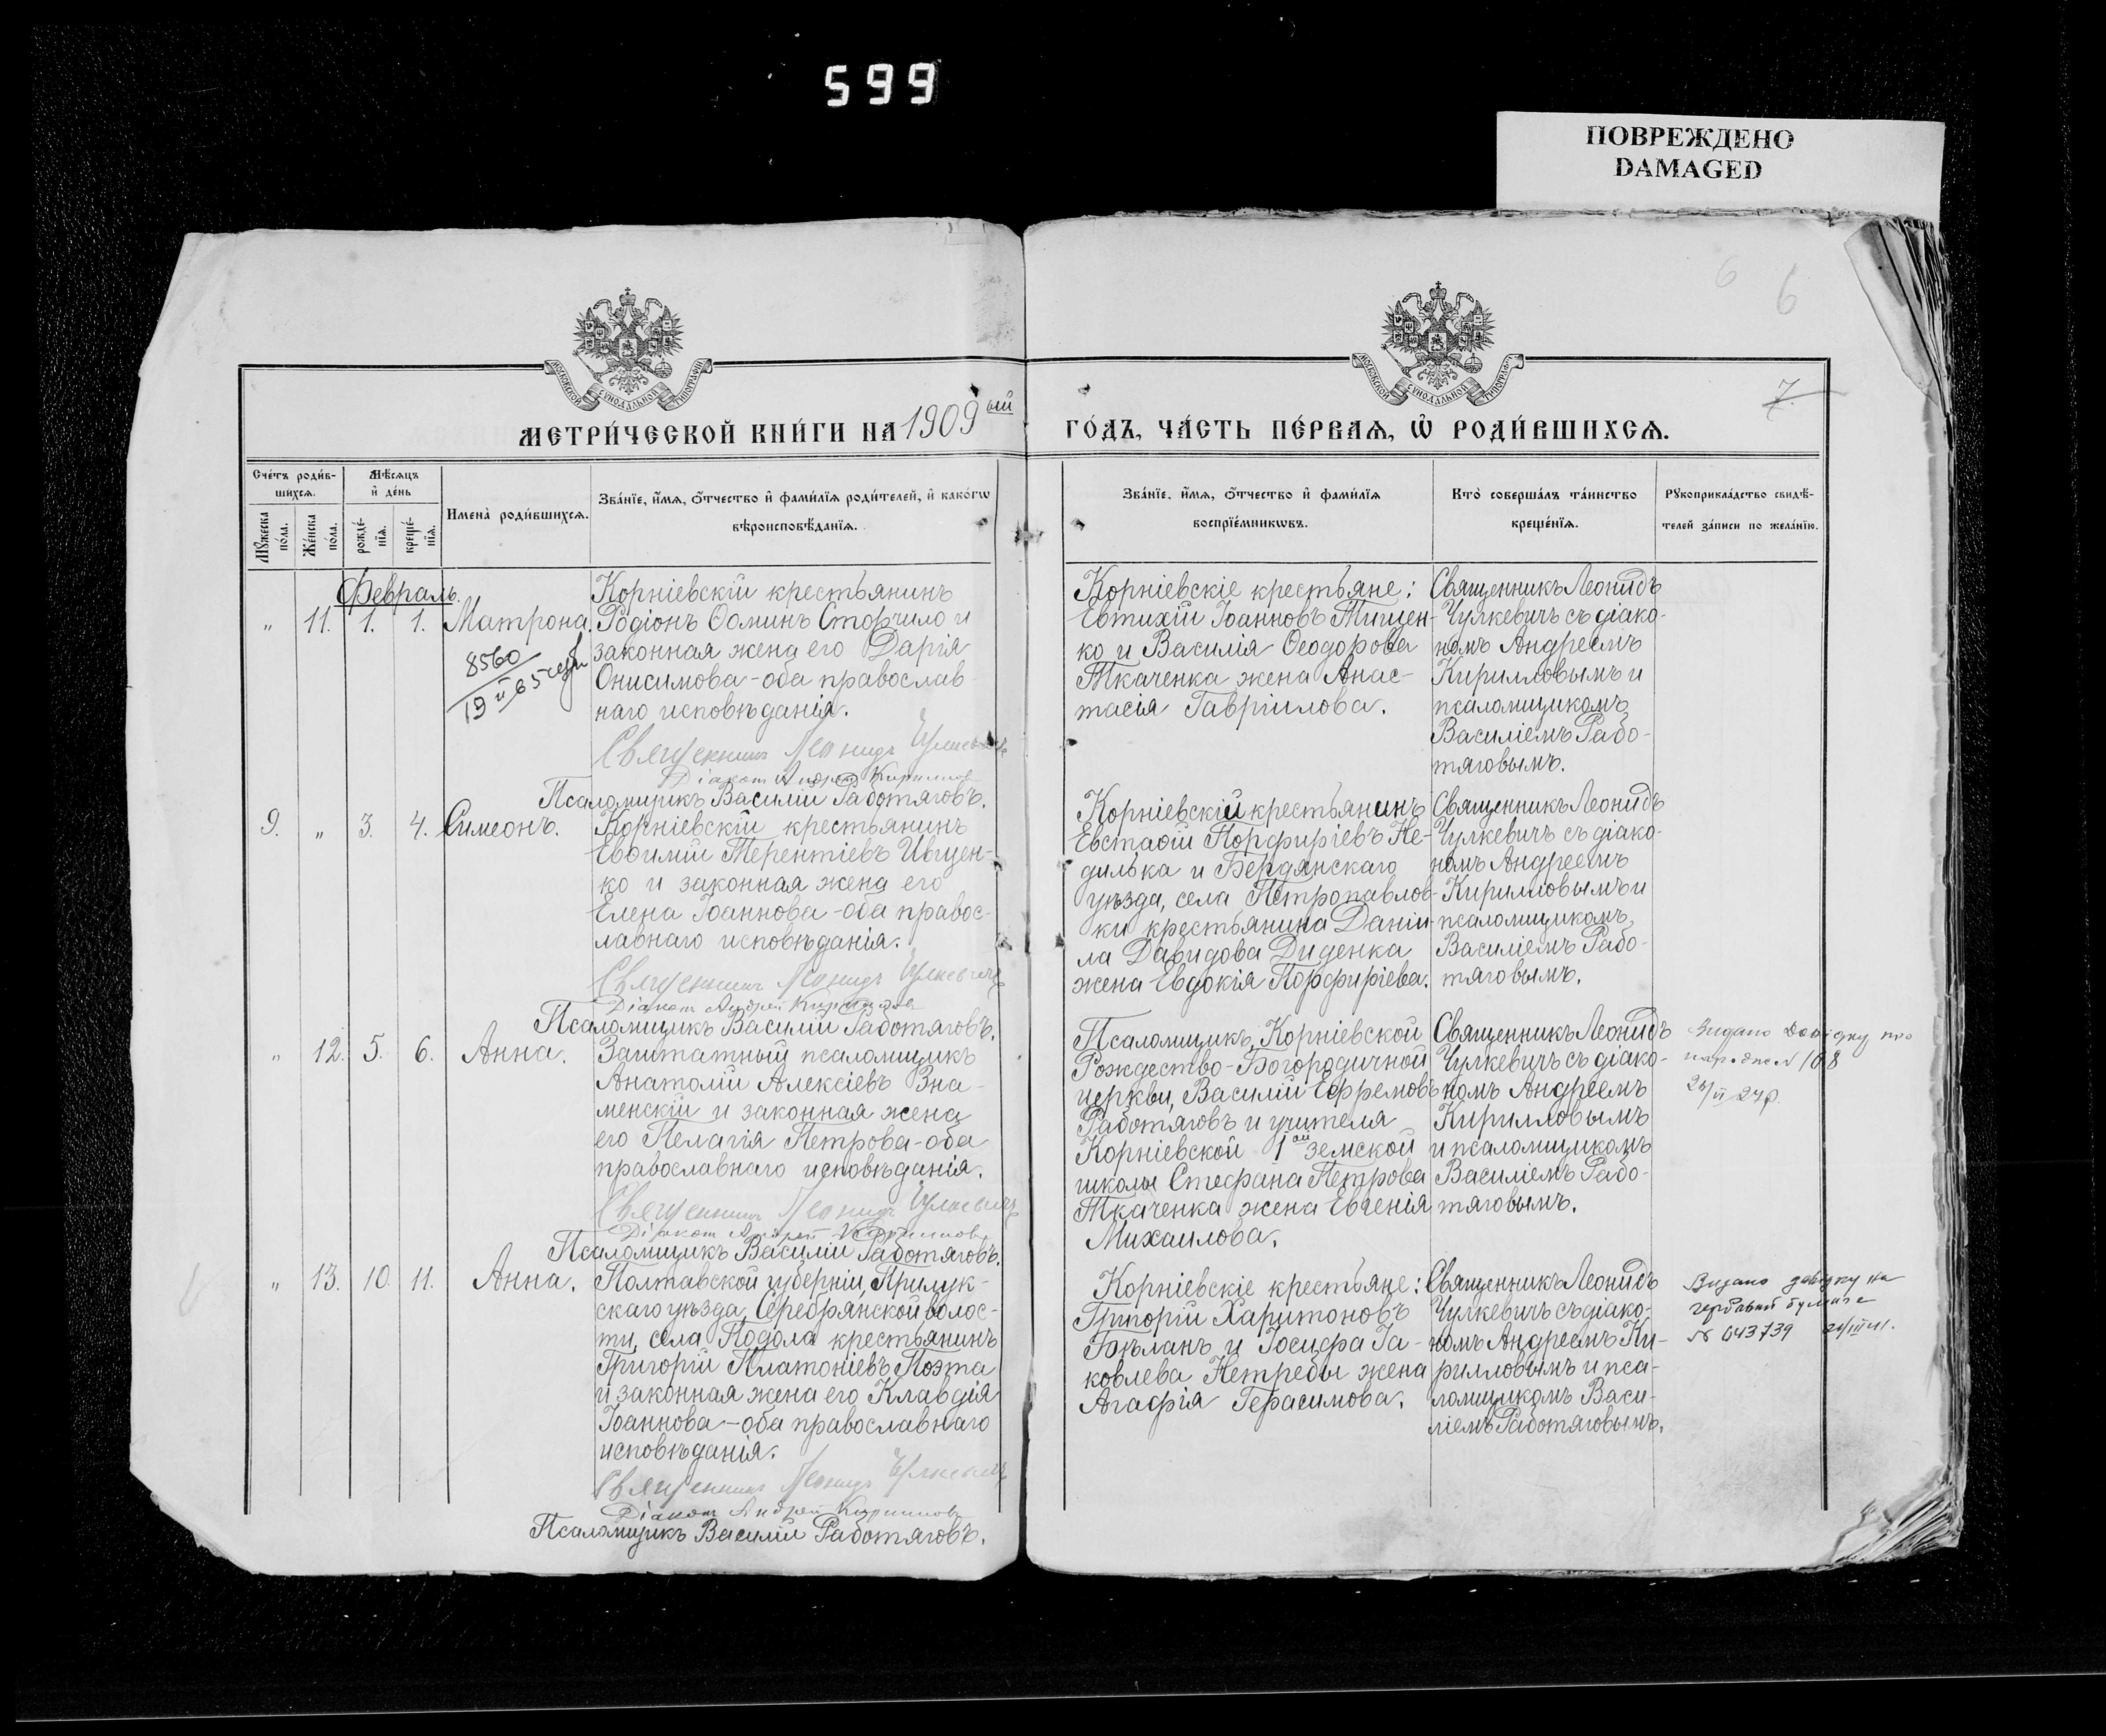 599
ПОВРЕЖДЕНО
DAMAGED
6
6
7.
МОСКОВСКОЙ СУНОДАЛЬНОЙ ТИПОГРАФІИ
МОСКОВСКОЙ СУНОДАЛЬНОЙ ТИПОГРАФІИ
МЕТРИ́ЧЕСКОЙ КНИ́ГИ НА 1909ый
ГО́ДЪ, ЧА́СТЬ ПЕ́РВАѦ, Ѿ РОДИ́ВШИХСѦ.
Сче́тъ роди́в-
шихсѧ.
Мѣ́сѧцъ
и҆ де́нь
Мꙋ́жеска
по́ла.
Же́нска
по́ла.
рожде́-
нїѧ.
креще́-
нїѧ.
Имена̀ роди́вшихсѧ.
Зва́нїе, и҆́мѧ, ѻ҆́тчество и҆ фами́лїѧ роди́телей, и҆ како́гѡ
вѣроисповѣ́данїѧ.
Зва́нїе, и҆́мѧ, ѻ҆́тчество и҆ фами́лїѧ
воспрїе́мникѡвъ.
Кто̀ соверша́лъ та́инство
креще́нїѧ.
Рꙋкоприкла́дство свидѣ́-
телей за́писи по жела́нїю.
Февраль.
" 11. 1. 1. Матрона.
8560
Корніевскій крестьянинъ
Родіонъ Ѳоминъ Сторчило и
законная жена его Дарія
Онисимова - оба православ-
наго исповѣданія.
Священникъ Леонидъ Чулкевичъ
Діаконъ Андрей Кирилловъ
Псаломщикъ Василій Работяговъ.
Корніевскіе крестьяне:
Евтихій Іоанновъ Тищен-
ко и Василія Ѳеодорова
Ткаченка жена Анас-
тасія Гавріилова.
Священникъ Леонидъ
Чулкевичъ съ діако-
номъ Андреемъ
Кирилловымъ и
псаломщикомъ
Василіемъ Рабо-
тяговымъ.
9. " 3. 4. Симеонъ.
Корніевскій крестьянинъ
Евѳимій Терентіевъ Ивщен-
ко и законная жена его
Елена Іоаннова - оба правос-
лавнаго исповѣданія.
Священникъ Леонидъ Чулкевичъ
Діаконъ Андрей Кирилловъ
Псаломщикъ Василій Работяговъ.
Корніевскій крестьянинъ
Евстаѳій Порфиріевъ Не-
дилька и Бердянскаго
уѣзда, села Петропавлов-
ки крестьянина Даніи-
ла Давидова Диденка
жена Евдокія Порфиріева.
Священникъ Леонидъ
Чулкевичъ съ діако-
номъ Андреемъ
Кирилловымъ и
псаломщикомъ
Василіемъ Рабо-
тяговымъ.
" 12. 5. 6. Анна.
Заштатный псаломщикъ
Анатолій Алексіевъ Зна-
менскій и законная жена
его Пелагія Петрова - оба
православнаго исповѣданія.
Священникъ Леонидъ Чулкевичъ
Діаконъ Андрей Кирилловъ
Псаломщикъ Василій Работяговъ.
Псаломщикъ Корніевской
Рождество-Богородичной
церкви, Василій Ефремовъ
Работяговъ и учителя
Корніевской 1ой земской
школы Стефана Петрова
Ткаченка жена Евгенія
Михаилова.
Священникъ Леонидъ
Чулкевичъ съ діако-
номъ Андреемъ
Кирилловымъ
и псаломщикомъ
Василіемъ Рабо-
тяговымъ.
Видано довідку про
168
" 13. 10. 11. Анна.
Полтавской губерніи, Прилук-
скаго уѣзда, Серебрянской волос-
ти, села Подола крестьянинъ
Григорій Платоніевъ Поэта
и законная жена его Клавдія
Іоаннова - оба православнаго
исповѣданія.
Священникъ Леонидъ Чулкевичъ
Діаконъ Андрей Кирилловъ
Псаломщикъ Василій Работяговъ.
Корніевскіе крестьяне:
Григорій Харитоновъ
Бѣланъ и Іосифа Іа-
ковлева Нетребы жена
Агафія Герасимова.
Священникъ Леонидъ
Чулкевичъ съ діако-
номъ Андреемъ Ки-
рилловымъ и пса-
ломщикомъ Васи-
ліемъ Работяговымъ.
Видано довідку на
гербовій бумазі
№ 643739